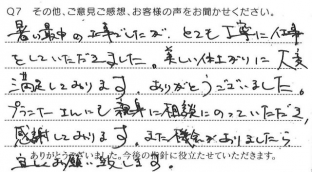 Q7 その他、ご意見ご感想、お客様の声をお聞かせください。
暑い最中の工事でしたが、とても丁寧に仕事
をしていただきました。美しい仕上がりに大変
満足しております。ありがとうございました。
プランナーさんにも親身に相談にのっていただき、
感謝しております。また機会がありましたら
ありがとうございました。今後の指針に役立たせていただきます。
宜しくお願い致します。